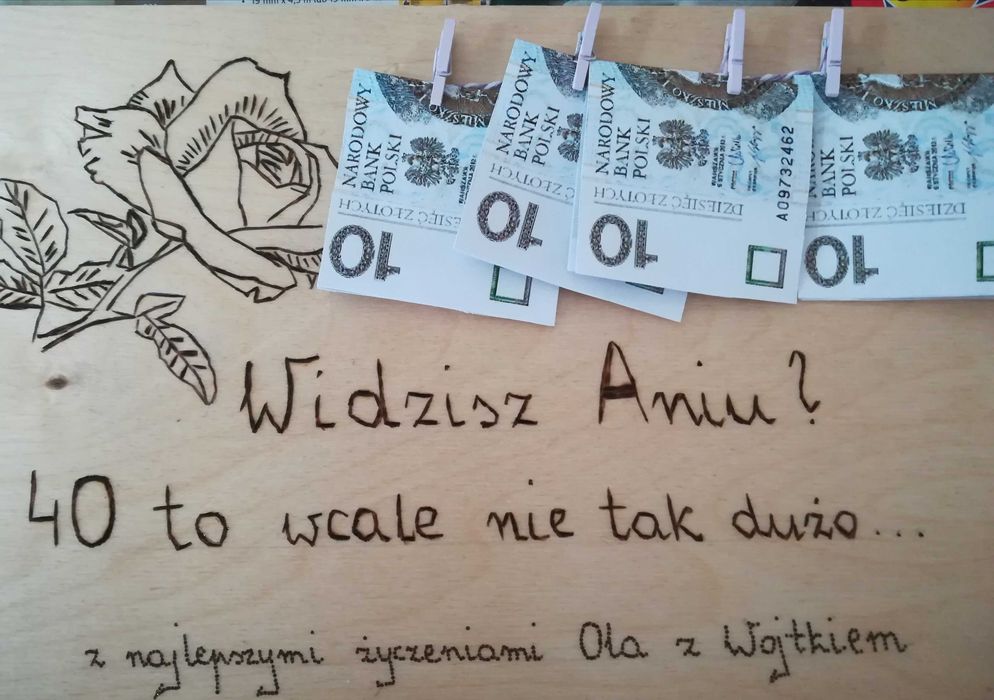 NARODOWY
BANK
POLSKI
10
NARODOWY
BANK
POLSKI
10
NARODOWY
BANK
POLSKI
MIESZKO I
DZIESIĘĆ ZŁOTYCH
A09732462
10
BANK
POLSKI
MIESZKO I
DZIESIĘĆ ZŁOTYCH
10
Widzisz Aniu?
40 to wcale nie tak dużo...
z najlepszymi życzeniami Ola z Wojtkiem